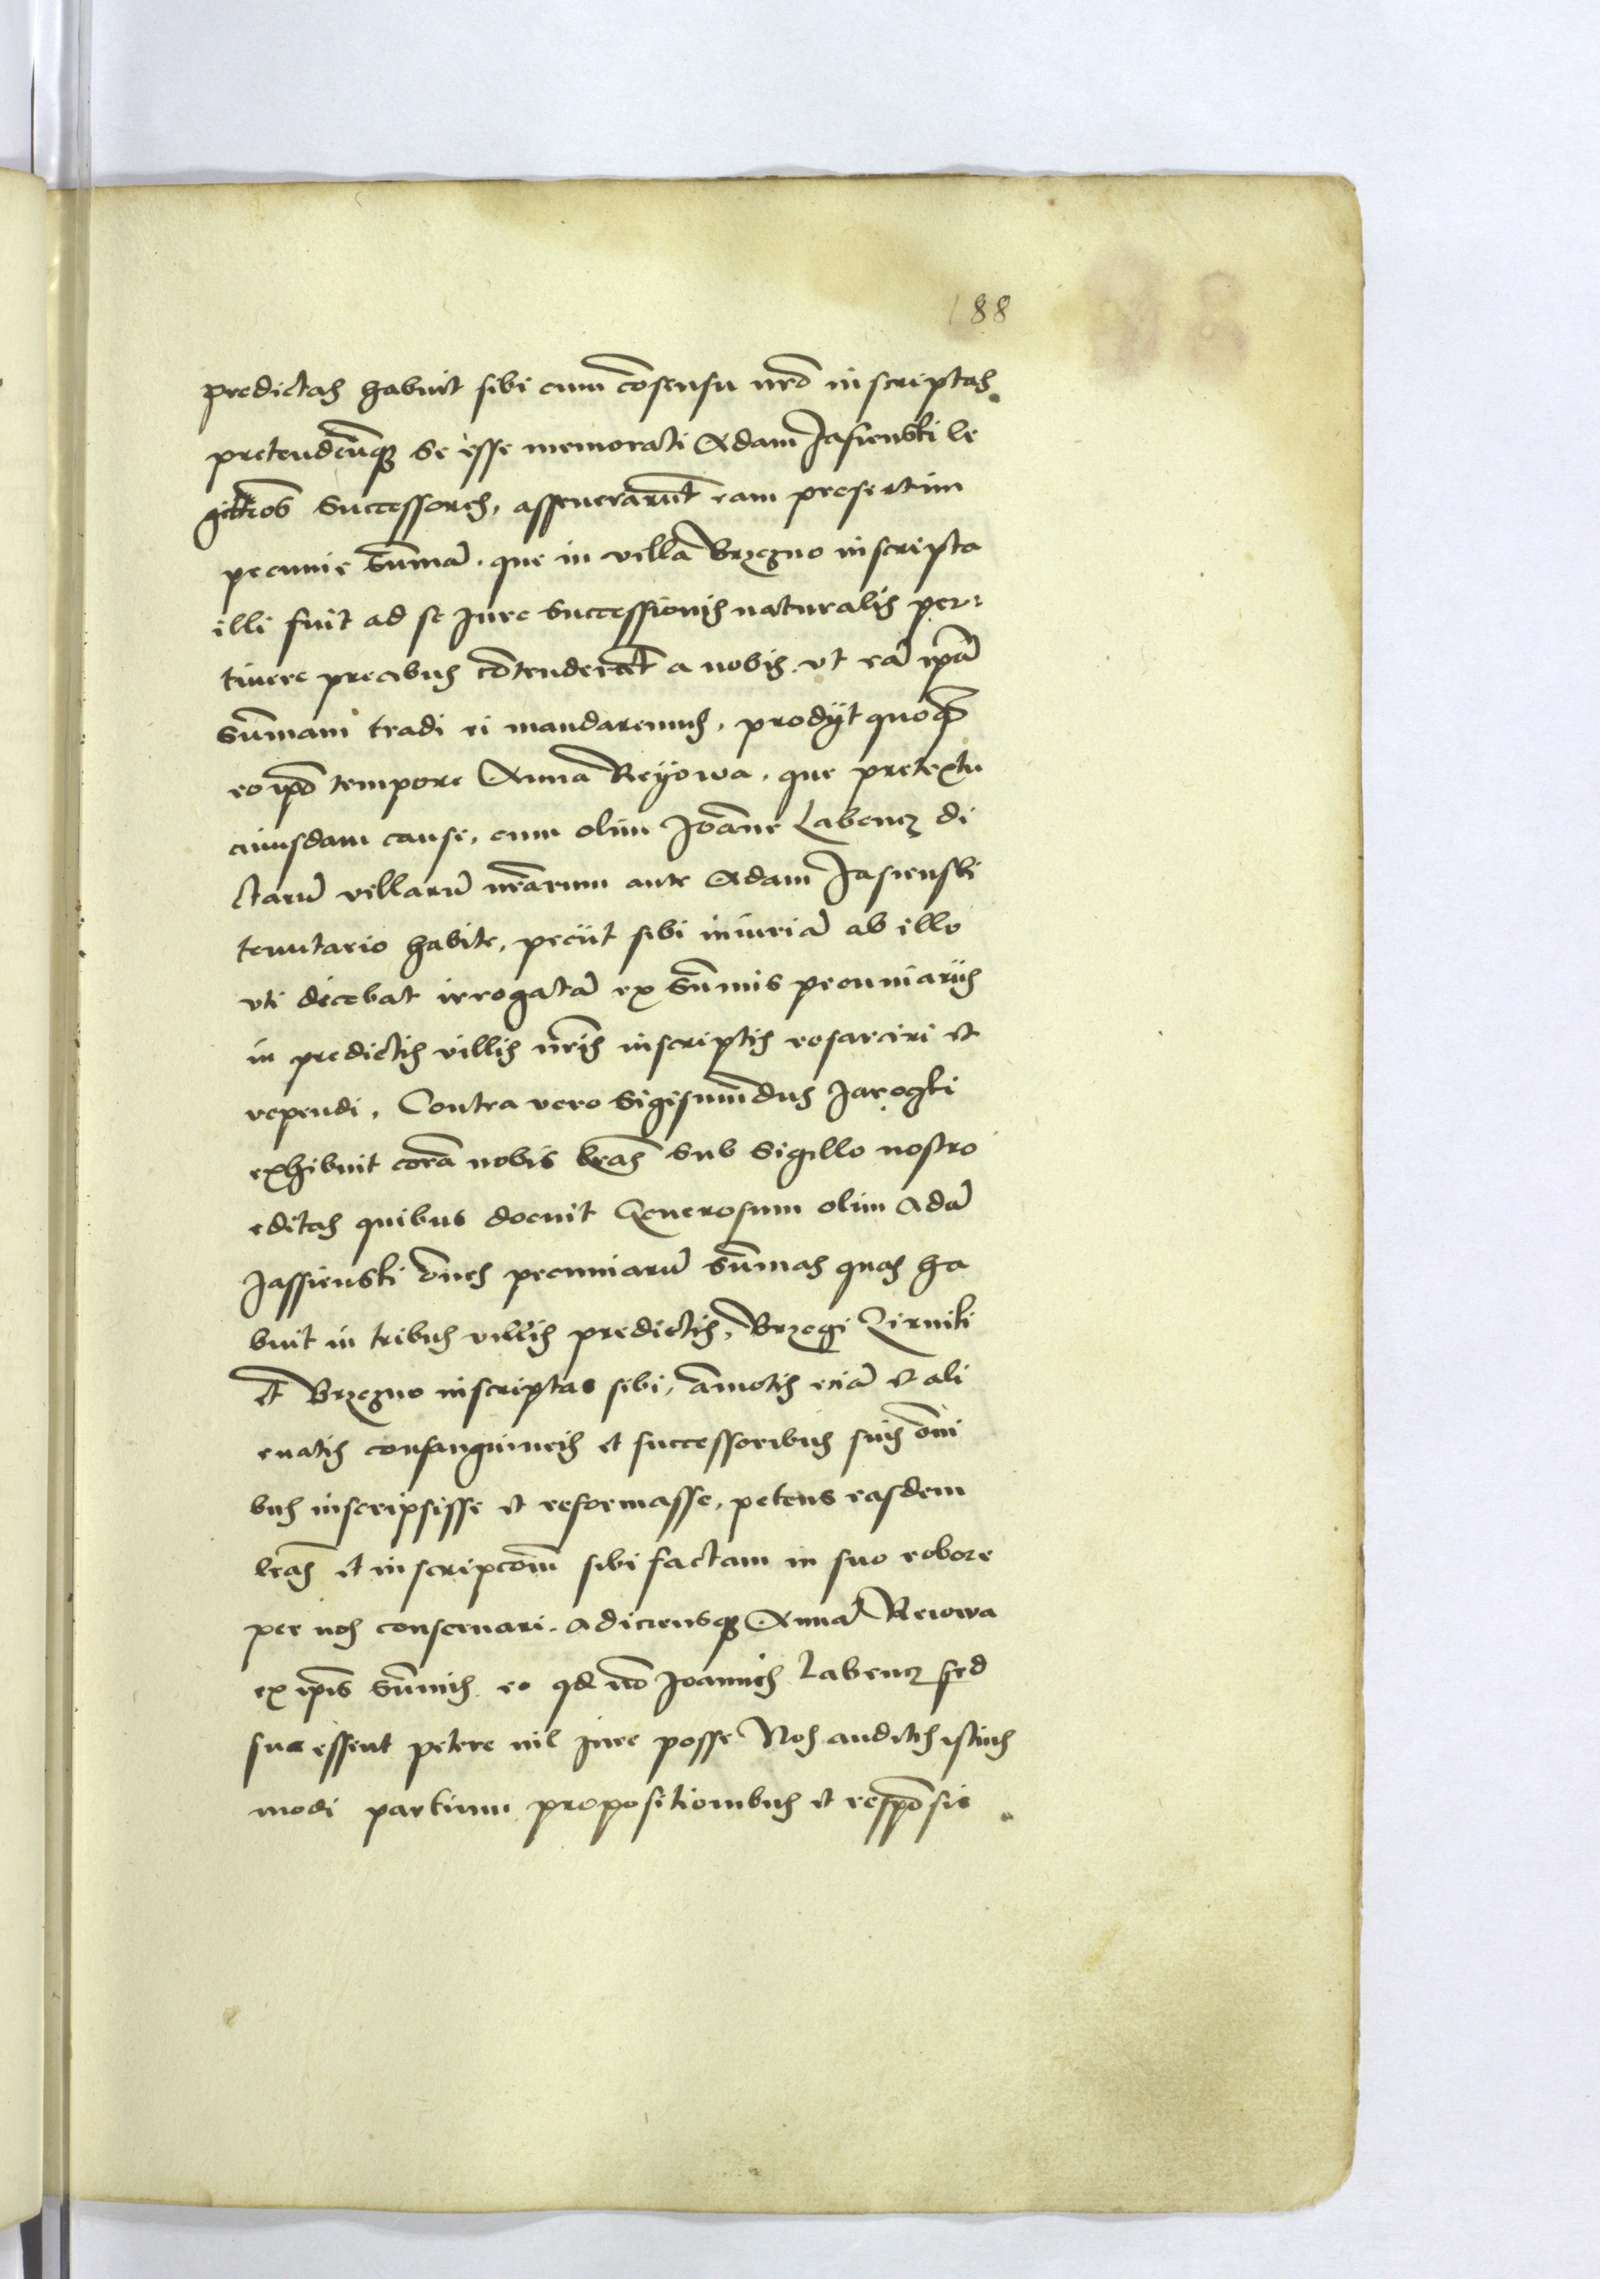 188
predictas habuit sibi cum cōsensu nrō inscriptas
pretendēūq; se esse memorati Adam Jasienski le
gittīos successores, asseuerarūt eam presertim
pecunie sūmā. que in villa Brzegno inscripta
illi fuit ad se jure successionis naturalis per-
tinere precibus cōtenderāt a nobis vt eā ipā
sūmam tradi ei mandaremus, prodijt quoq;
eo ipō tempore Anna Reÿowa. que pretextu
cuiusdam cause, cum olim Joāne Labencz di
ctarū villarū nrārum ante Adam Jasienski
tenutario habite, peciit sibi iniuriā ab illo
vti dicebat irrogatā ex sūmis pecuniariis
in predictis villis nrīs inscriptis resarciri et
rependi. Contra vero Sigismūdus Jarogki
exhibuit corā nobis lrās sub sigillo nostro
editas quibus docuit Generosum olim Adā
Jassienski oēs pecuniarū sūmas quas ha
buit in tribus villis predictis, Brzegi Zirniki
et Brzegno inscriptas sibi, āmotis eciā et ali
enatis consanguineis et successoribus suis oīni
bus inscripsisse et reformasse, petens easdem
lrās et inscripcōīm sibi factam in suo robore
per nos conseruari. adiciensq; Annā Reiowa
ex ipīs sūmis eo qd nō Joannis Labencz sed
sue essent petere nil jure posse Nos auditis istius
modi partium propositionibus et respōsis